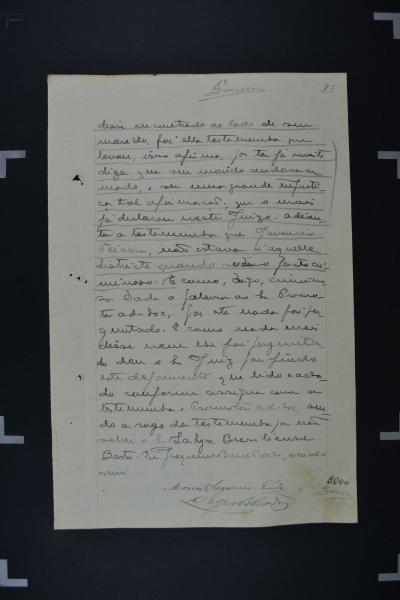 85
disse encontrado ao lado de seu
marido, foi ella testemunha que
levou, isso afirma, por ter já
diga que seu marido andava ar-
mado, é uma grande injusti-
ça tal afirmação, que o mais
já declarou neste Juizo. adean-
ta a testemunha que
Teixeira, não estava n'aquelle
districto quando se deu o facto cri-
minoso. E como, digo, crimino-
so. Dada a palavra ao sr Promo-
tor ad-hoc, por este nada foi per-
guntado. E como nada mais
disse nem lhe foi pergunta-
do deu o sr Juiz por findo
este depoimento que lido e acha-
do conforme assigna com a
testemunha e Promotor ad-hoc, sen-
do a rogo da testemunha por não
saber o sr Brasiliense
Bastos. Eu Joaquim escrivão
8000